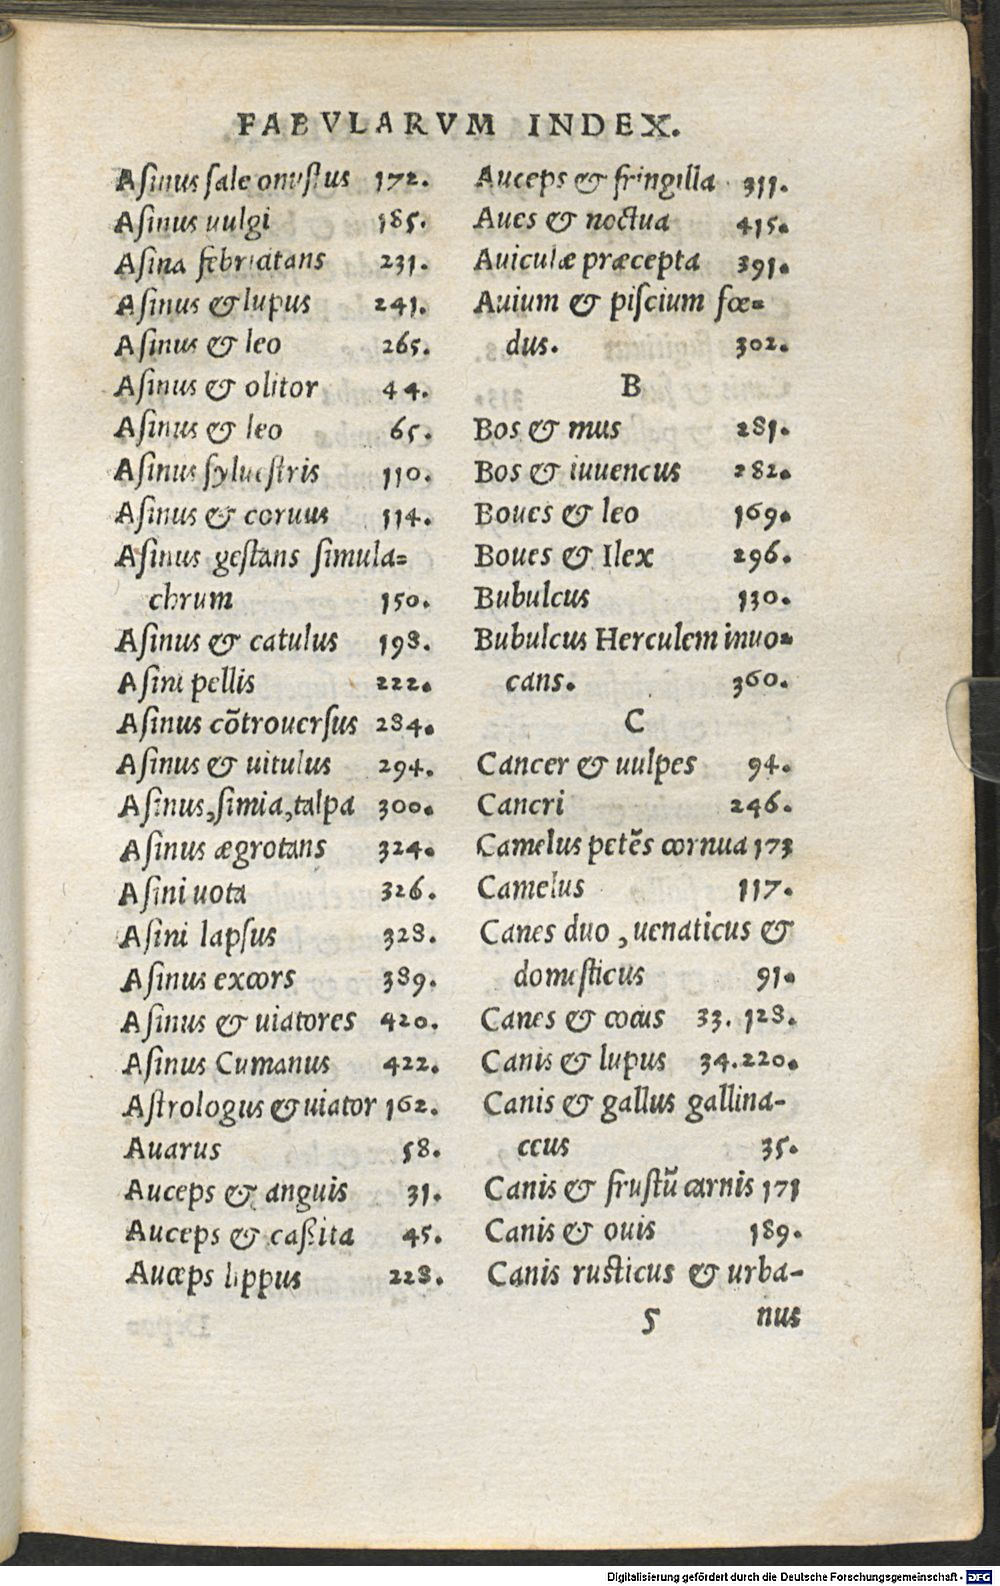 FABVLARVM INDEX.
Aſinus ſale onuſtus 172.
Aſinus uulgi 185.
Aſina febricitans 231.
Aſinus & lupus 241.
Aſinus & leo 265.
Aſinus & olitor 44.
Aſinus & leo 65.
Aſinus ſylueſtris 110.
Aſinus & coruus 114.
Aſinus geſtans ſimula=
chrum 150.
Aſinus & catulus 198.
Aſini pellis 222.
Aſinus cõtrouerſus 284.
Aſinus & uitulus 294.
Aſinus,ſimia,talpa 300.
Aſinus ægrotans 324.
Aſini uota 326.
Aſini lapſus 328.
Aſinus excors 389.
Aſinus & uiatores 420.
Aſinus Cumanus 422.
Aſtrologus & uiator 162.
Auarus 58.
Auceps & anguis 31.
Auceps & caßita 45.
Auceps lippus 228.
Auceps & fringilla 311.
Aues & noctua 415.
Auiculæ præcepta 391.
Auium & piſcium fœ=
dus. 302.
B
Bos & mus 281.
Bos & iuuencus 282.
Boues & leo 169.
Boues & Ilex 296.
Bubulcus 130.
Bubulcus Herculem inuo=
cans. 360.
C
Cancer & uulpes 94.
Cancri 246.
Camelus petẽs cornua 173
Camelus 117.
Canes duo, uenaticus &
domeſticus 91.
Canes & cocus 33. 128.
Canis & lupus 34.220.
Canis & gallus gallina-
ceus 35.
Canis & fruſtũ carnis 171
Canis & ouis 189.
Canis ruſticus & urba-
5 nus
Digitalisierung gefördert durch die Deutsche Forschungsgemeinschaft - DFG